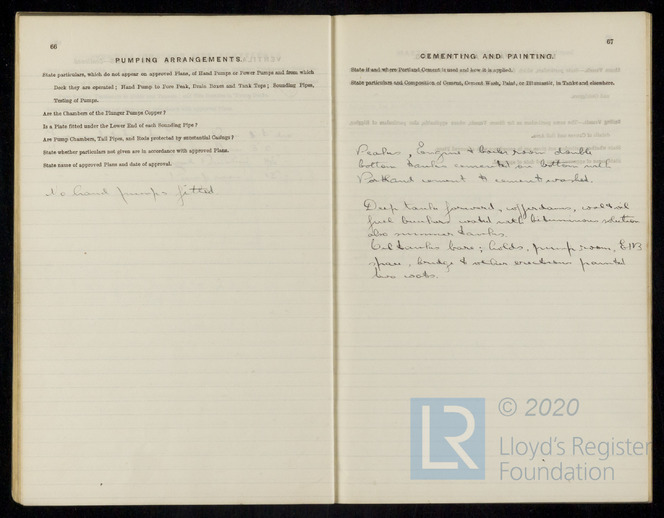 66
PUMPING ARRANGEMENTS.
State particulars, which do not appear on approved Plans, of Hand Pumps or Power Pumps and from which
Deck they are operated; Hand Pump to Fore Peak, Drain Boxes and Tank Tops; Sounding Pipes,
Testing of Pumps.
Are the Chambers of the Plunger Pumps Copper?
Is a Plate fitted under the Lower End of each Sounding Pipe?
Are Pump Chambers, Tail Pipes, and Rods protected by substantial Casings?
State whether particulars not given are in accordance with approved Plans.
State name of approved Plans and date of approval.
No hand pumps fitted.
67
CEMENTING AND PAINTING.
State if and where Portland Cement is used and how it is applied.
State particulars and Composition of Cement, Cement Wash, Paint, or Bitumastic, in Tanks and elsewhere.
Peaks, Engine & boiler room double
bottom tanks cemented on bottom with
Portland cement & cement washed.
Deep tanks forward, cofferdams, coal & oil
fuel bunkers coated with bituminous solution
also summer tanks.
Oil tanks bare; holds, pump room, E & B
space, bridge & other erections painted
two coats.
LR
© 2020
Lloyd's Register
Foundation